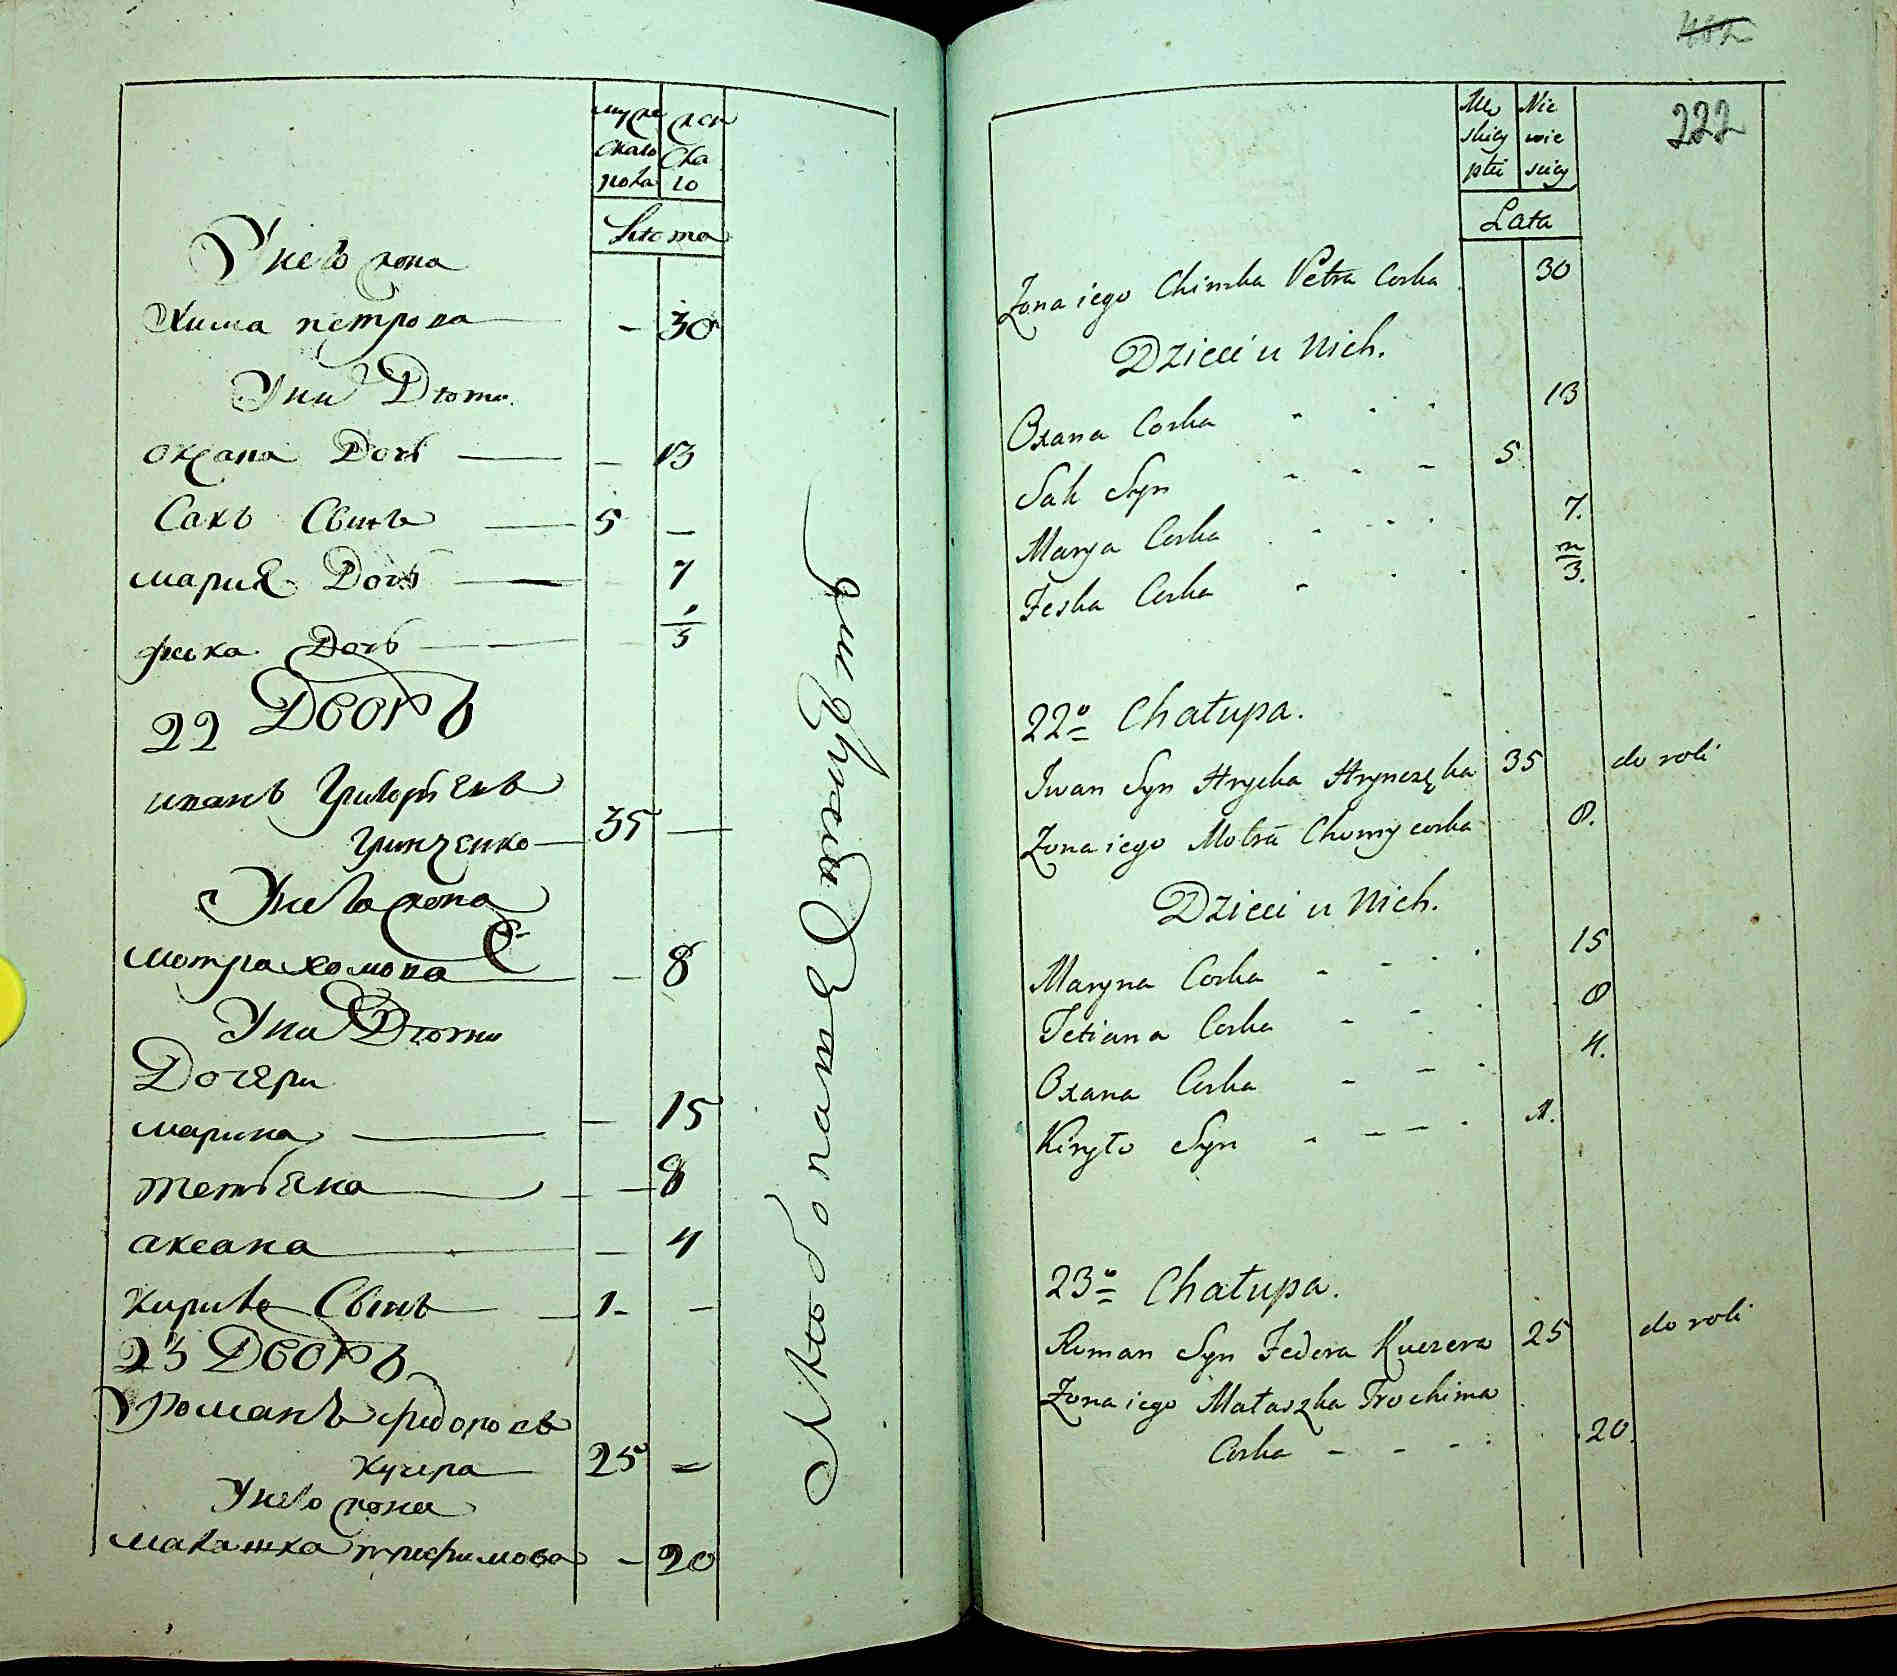 муже
скаго
пола
жен
ска
го
Лѣта
У него жена
Хима петрова — 30
У них Дѣти
оксана Дочь — 13
Сакъ Сынъ 5 —
мария Дочь — 7
феска Дочь — 1/3
22 Дворъ
иванъ Григорьевъ
Гринченко 35 —
У него жена
мотра хомова — 8
У них Дѣти
Дочери
марина — 15
тетьяна — 8
аксана — 4
Кирило Сынъ 1 —
23 Дворъ
Романъ федоровъ
кучера 25 —
У него жена
малашка трифимова — 20
482
222
Mę
skiey
płci
Nie
wie
sciey
Lata
Żona iego Chimka Petra Corka 30
Dzieci u Nich.
Oxana Corka 13
Sak Syn 5
Marya Corka 7.
Feska Corka n/3.
22o Chałupa.
Iwan Syn Hrycka Hrynczęka 35 do roli
Żona iego Motra Chomy corka 8.
Dzieci u Nich.
Maryna Corka 15
Tetiana Corka 8
Oxana Corka 4.
Kiryło Syn 1.
23o Chałupa.
Roman Syn Fedora Kuczera 25 do roli
Żona iego Małaszka Trochima
Corka 20.